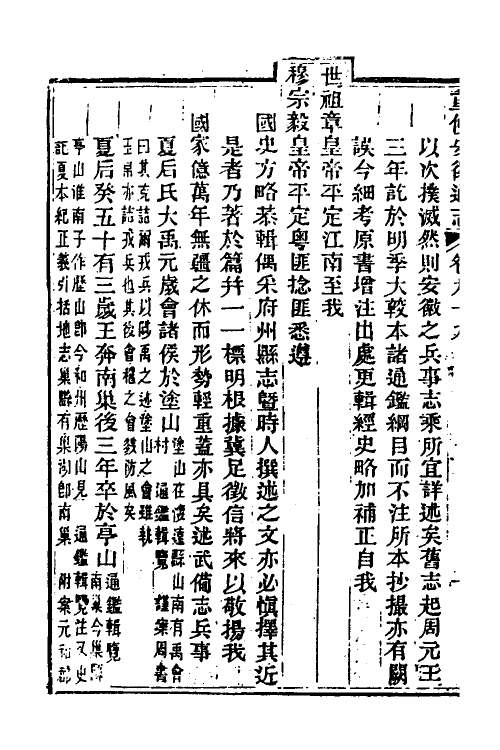 重修安徽通志 卷九十九
以次撲滅然則安徽之兵事志乘所宜詳述矣舊志起周元王
三年訖於明季大較本諸通鑑綱目而不注所本抄撮亦有闕
誤今細考原書增注出處更輯經史略加補正自我
世祖章皇帝平定江南至我
穆宗毅皇帝平定粵匪捻匪悉遵
國史方略恭輯偶采府州縣志暨時人撰述之文亦必慎擇其近
是者乃著於篇幷一一標明根據冀足徵信將來以敬揚我
國家億萬年無疆之休而形勢輕重蓋亦具矣述武備志兵事
夏后氏大禹元歲會諸侯於塗山塗山在懷遠縣山南有禹會村 通鑑輯覽 謹案周書
曰其克詰爾戎兵以陟禹之迹塗山之會雖執
玉帛亦詰戎兵也其後會稽之會發防風矣
夏后癸五十有三歲王奔南巢後三年卒於亭山通鑑輯覽 南巢今巢縣
亭山淮南子作歷山卽今和州歷陽山見 通鑑輯覽注又史
記夏本紀正義引括地志巢縣有巢湖卽南巢 附案元和郡